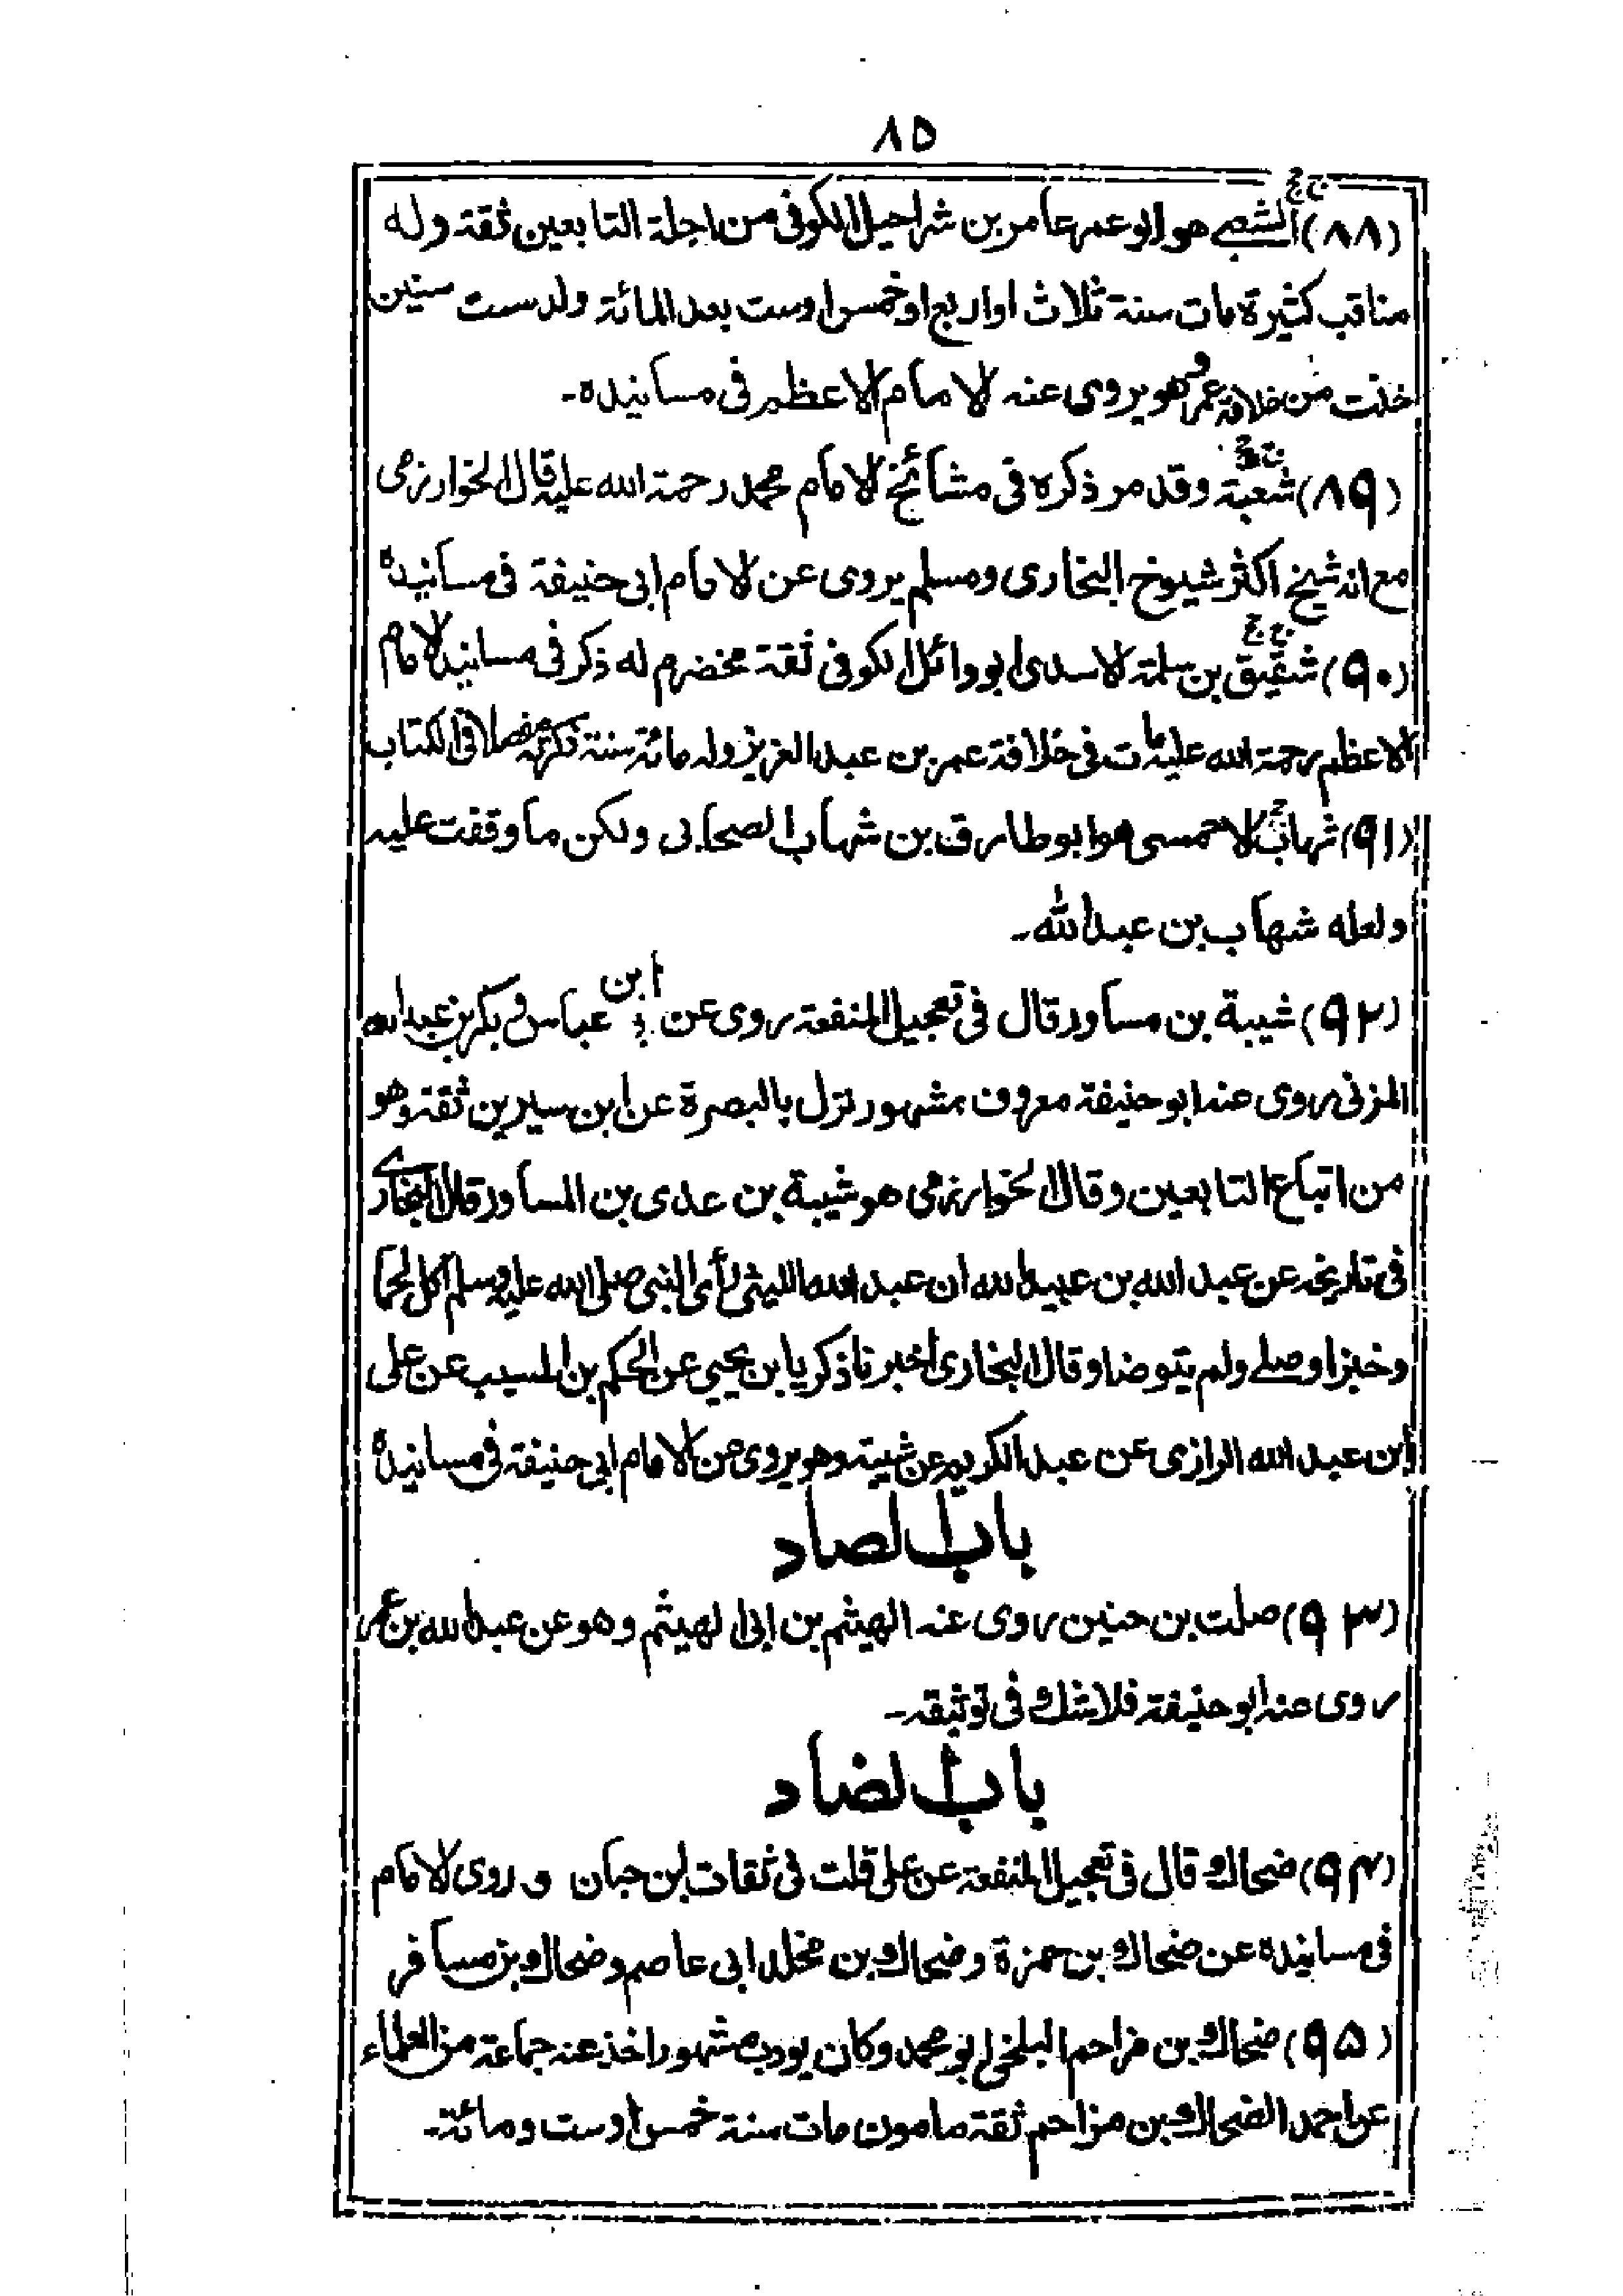 ٨٥
(٨٨) الشعبے هو ابو عمر عامر بن شراحيل الكوفى من اجلة التابعين ثقة وله
مناقب كثيرة مات سنة ثلاث او اربع او خمس او ست بعد المائة ولد ست سنين
خلت من خلافة عمر وهو يروى عنه الامام الاعظم فى مسانيده۔
(٨٩) شعبة وقد مر ذكره فى مشائخ الامام محمد رحمة الله عليه قال الخوارزمى
مع انه شيخ اكثر شيوخ البخارى ومسلم يروى عن الامام ابى حنيفة فى مسانيده
(٩٠) شقيق بن سلمة الاسدى ابو وائل الكوفى ثقة مخضرم له ذكر فى مسانيد الامام
الاعظم رحمة الله عليه مات فى خلافة عمر بن عبد العزيز وله مائة سنة مفصلا فى الكتاب
(٩١) شهاب الاحمسى هو ابو طارق بن شهاب الصحابى ولكن ما وقفت عليه
ولعله شهاب بن عبد الله۔
(٩٢) شيبة بن مساور قال فى تعجيل المنفعة روى عن ابن عباس و بكر بن عبد الله
المزنى روى عنه ابو حنيفة معروف مشهور نزل بالبصرة عن ابن سيرين ثقة وهو
من اتباع التابعين وقال الخوارزمى هو شيبة بن عدى بن المساور قال البخارے
فى تاريخه عن عبد الله بن عبيد الله ان عبد الله الليثى رأى النبى صلى الله عليه وسلم اكل لحما
وخبزا وصلے ولم يتوضا وقال البخارى اخبرنا ذكريا بن يحيى عن الحكم بن المسيب عن على
ابن عبد الله الرازى عن عبد الكريم عن شيبة وهو يروى عن الامام ابى حنيفة فى مسانيده
باب الصاد
(٩٣) صلت بن حنين روى عنه الهيثم بن ابى الهيثم وهو عن عبد الله بن عمر
روى عنه ابو حنيفة فلا شك فى توثيقه۔
باب الضاد
(٩٤) ضحاك قال فى تعجيل المنفعة عن على قلت فى ثقات ابن حبان و روى الامام
فى مسانيده عن ضحاك بن حمزة وضحاك بن مخلد ابى عاصم وضحاك بن مسافر
(٩٥) ضحاك بن مزاحم البلخى ابو محمد وكان يودب مشهور اخذ عنه جماعة من العلماء
عن احمد الضحاك بن مزاحم ثقة مامون مات سنة خمس او ست ومائة۔